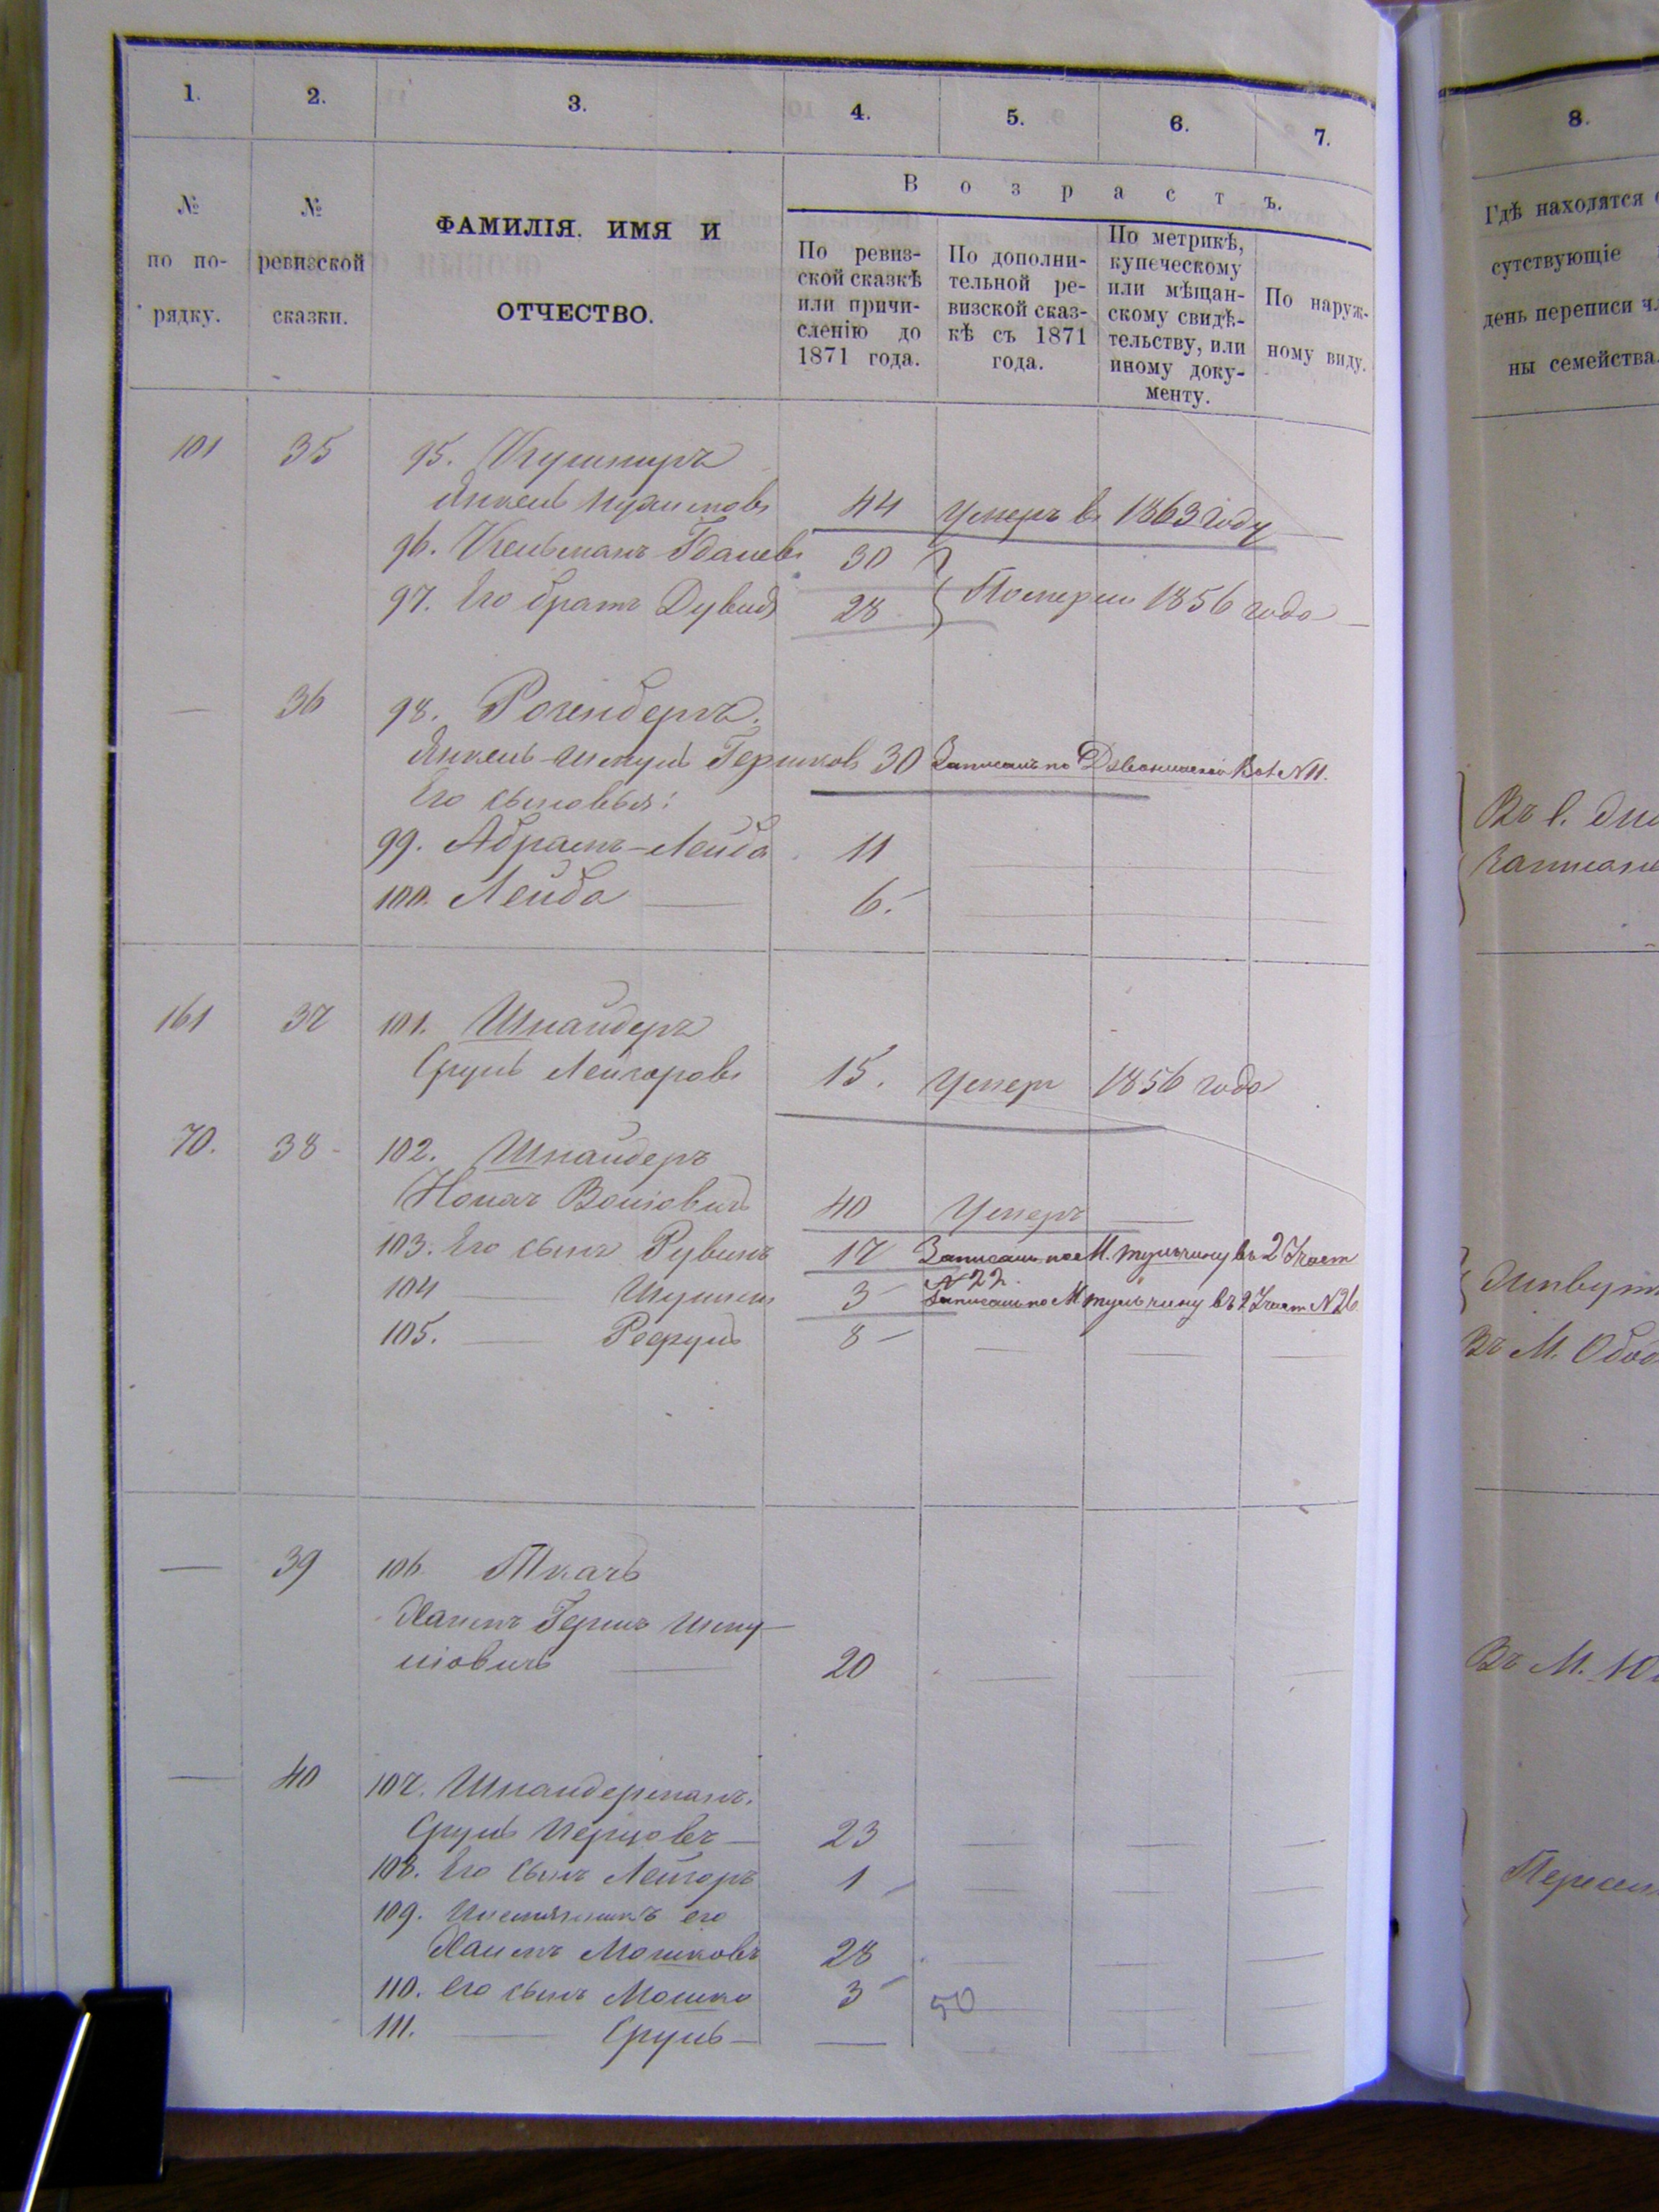 1. 2. 3. 4. 5. 6. 7.
№ по по-рядку.
№ ревизской сказки.
ФАМИЛІЯ. ИМЯ И
ОТЧЕСТВО.
Возрастъ.
По ревиз-
ской сказкѣ
или причи-
сленію до
1871 года.
По дополни-
тельной ре-
визской сказ-
кѣ съ 1871
года.
По метрикѣ,
купеческому
или мѣщан-
скому свидѣ-
тельству, или
иному доку-
менту.
По наруж-
ному виду.
101 35 95. Кушниръ
Янкель 44 Умеръ в 1863 году
96. Кельманъ 30
97. Его братъ Дувидъ 28 Померли 1856 года
— 36 98. Розенбергъ.
Янкель Шмуль Гершковъ 30 Записанъ по №11.
Его сыновья:
99. Абрамъ-Лейба 11
100. Лейба 6.
161 37 101. Шнайдеръ
Сруль Лейзоровъ 15. Умеръ 1856 года
70. 38 102. Шнайдеръ
Вольовичъ 40 Умеръ
103. Его сынъ Рувинъ 17 Записанъ по М. Тульчину въ 2 Участ
№22.
104 — 3 Записанъ по М Тульчину въ 2 Участ №26.
105. — 8
— 39 106. Ткачъ
Хаимъ Гершъ Шму-
льовичъ 20
— 40 107. Шнайдерманъ.
Сруль 23
108. Его сынъ Лейзоръ 1
109. Племянникъ его
Хаимъ Мошковъ 28
110. Его сынъ Мошко 3 50
111. — Сруль —
8.
Гдѣ находятся
сутствующіе
день переписи
ны семейства.
Въ с.
Въ М.
Въ М.